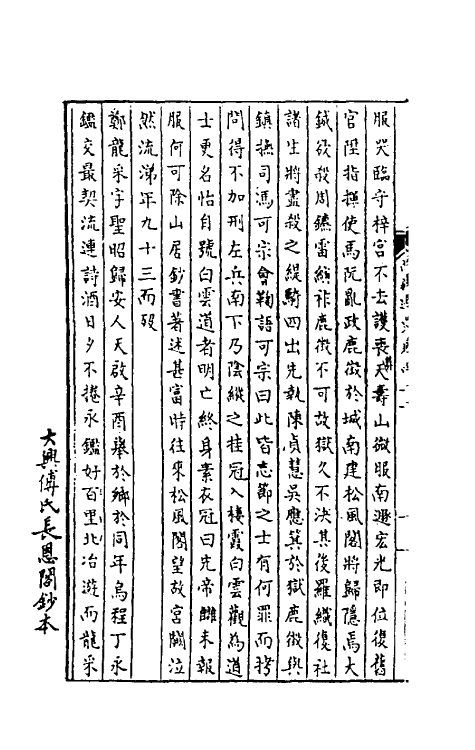 服哭臨守梓宮不去護喪天壽山微服南遯宏光即位復舊
官陞指揮使馬阮亂政鹿徵於城南建松風閣將歸隱焉大
鋮欲殺周鑣雷縯祚鹿徵不可故獄久不決其後羅織復社
諸生將盡殺之緹騎四出先執陳貞慧吳應箕於獄鹿徵與
鎮撫司馮可宗會鞫語可宗曰此皆志節之士有何罪而拷
問得不加刑左兵南下乃陰縱之挂冠入棲霞白雲觀為道
士更名怡自號白雲道者明亡終身素衣冠曰先帝讎未報
服何可除山居鈔書著述甚富時往來松風閣望故宮闕泣
然流涕年九十三而歿
鄭龍采字聖昭歸安人天啟辛酉舉於鄉於同年烏程丁永
鑑交最契流連詩酒日夕不捲永鑑好百里北冶遊而龍采
大興傅氏長恩閣鈔本